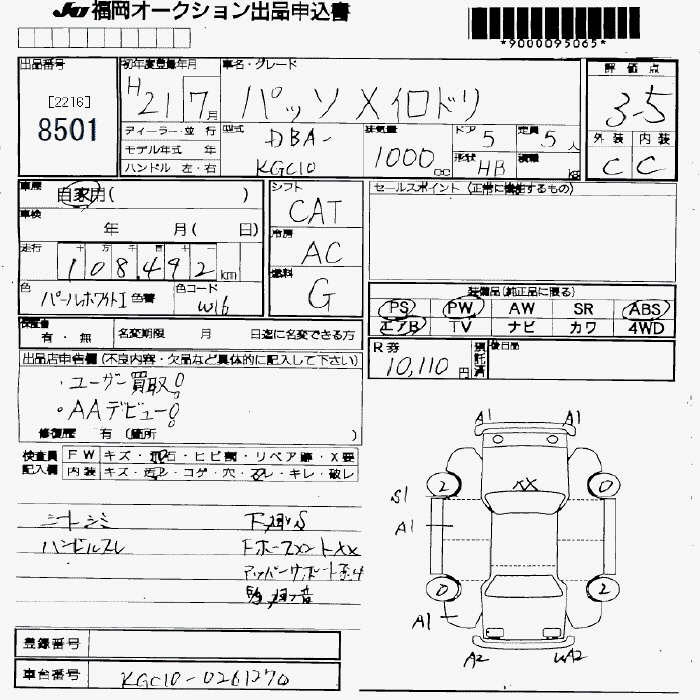 JU 福岡オークション出品申込書
*9000095065*
出品番号
[2216]
8501
初年度登録年月
H 21 7月
車名・グレード
パッソ X イロドリ
評価点
3-5
外装 内装
C C
ディーラー・並行
モデル年式 年
ハンドル 左・右
型式
DBA-
KGC10
排気量
1000 cc
ドア 5
定員 5 人
形状 HB
積載 kg
車歴
自家用( )
車検
年 月( 日)
走行
十 万 千 百 十 一
108,492 km
色
パールホワイトI 色替
色コード
W16
シフト
CAT
冷房
AC
燃料
G
セールスポイント(正常に機能するもの)
装備品(純正品に限る)
PS PW AW SR ABS
エアB TV ナビ カワ 4WD
保証書
有・無
名変期限 月 日迄に名変できる方
R券
10,110円
預託済
後日品
出品店申告欄(不良内容・欠品など具体的に記入して下さい)
・ユーザー買取!
・AAデビュー!
修復歴 有(箇所 )
検査員
記入欄
FW キズ・飛石・ヒビ割・リペア跡・X要
内装 キズ・汚レ・コゲ・穴・スレ・キレ・破レ
シートシミ
ハンドルスレ
下廻りS
A1 A1
XX
2 0
S1
A1
0 2
A1
A2 WA2
登録番号
車台番号
KGC10-0261270